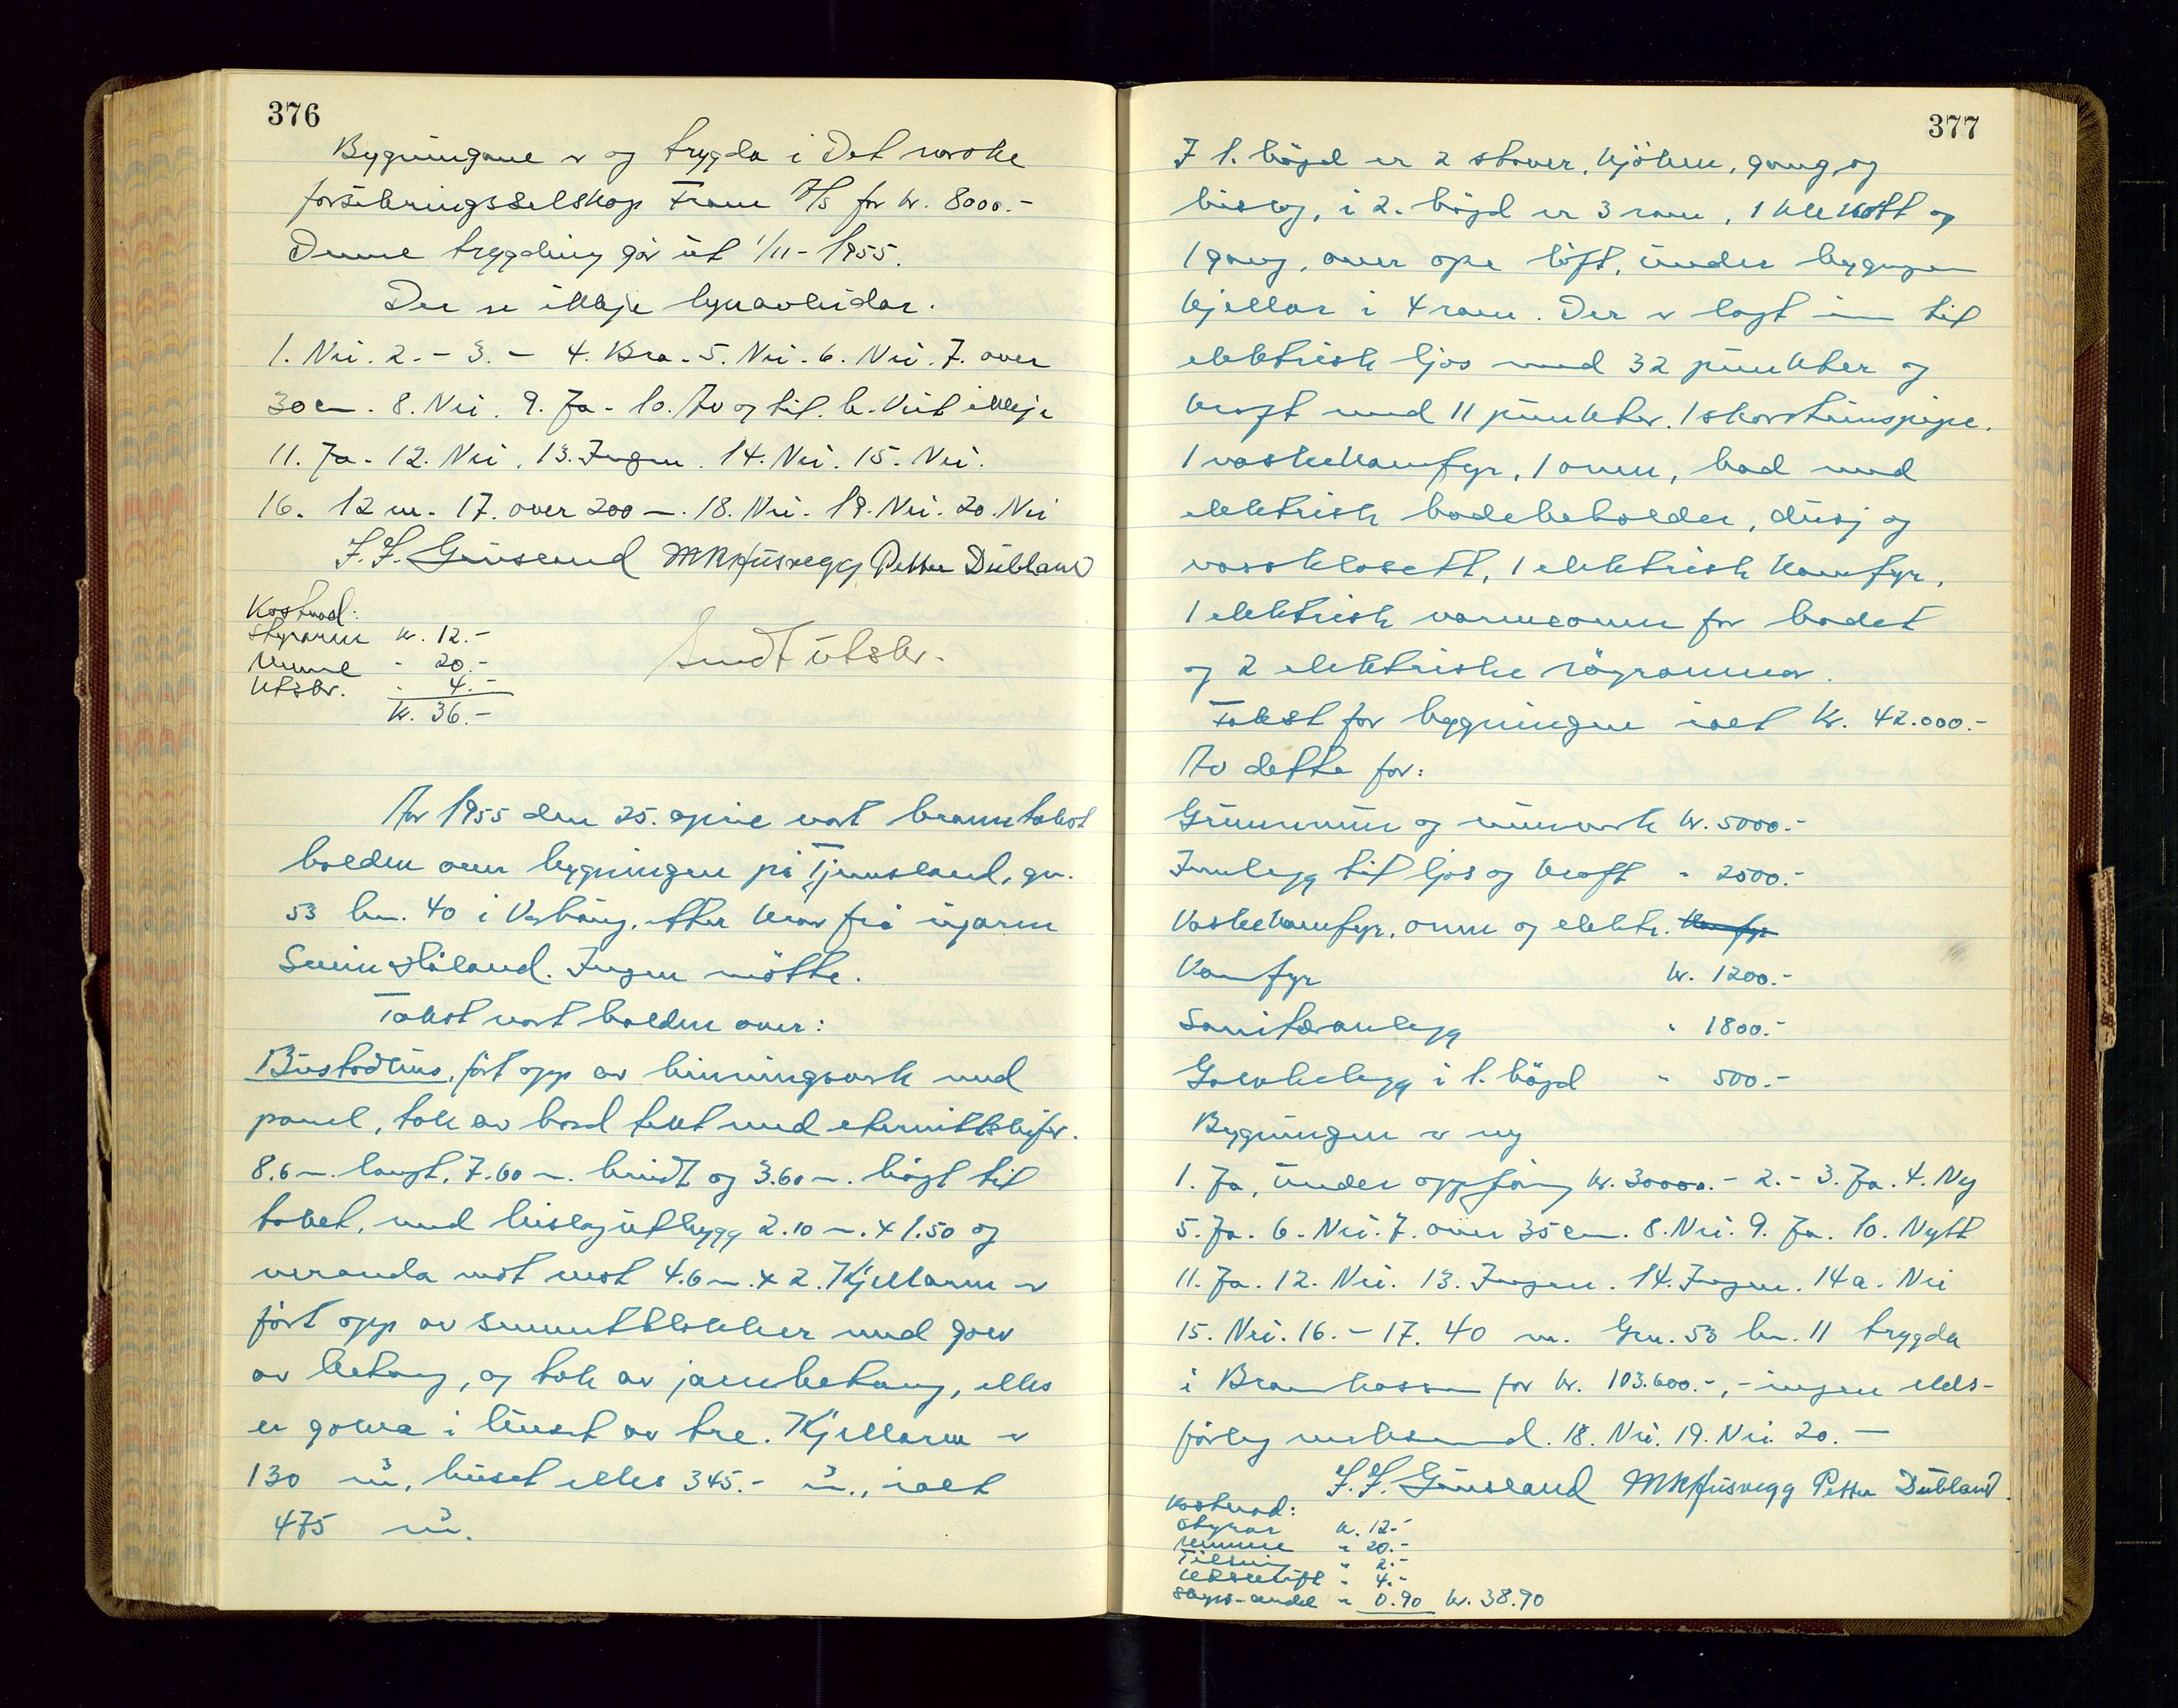 376
Bygningane er og trygda i Det norske
forsikringsselskap Fram A/S for kr. 8000.-
Denne trygding går ut 1/11-1955.
Der er ikkje lynavleidar.
1. Nei. 2. - 3. - 4. Bra. 5. Nei. 6. Nei. 7. over
30 cm. 8. Nei. 9. Ja. 10. Av og til b. Veit ikkje
11. Ja. 12. Nei. 13. Ingen. 14. Nei. 15. Nei.
16. 12 m. 17. over 200 m. 18. Nei. 19. Nei. 20. Nei
MK Husvegg Petter Dubland
Kostnad:
Styraren kr. 12.-
Menne " 20.-
Utskr. " 4.-
kr. 36.-
Sendt utskr.
År 1955 den 25. april vart branntakst
halden over bygningen på Tjemsland, gn.
53 bn. 40 i Varhaug, etter krav frå eigaren
Svein Håland. Ingen møtte.
Takst vart halden over:
Bustadhus, ført opp av bindingsverk med
panel, tak av bord tekt med eternittskifer.
8.6 m. langt, 7.60 m. breidt og 3.60 m. høgt til
taket, med bislagutbygg 2.10 m. x 1.50 og
veranda mot vest 4.6 m. x 2. Kjellaren er
ført opp av sementblokker med golv
av betong, og tak av jarnbetong, elles
er golva i huset av tre. Kjellaren er
130 m³, huset elles 345.- m³., ialt
475 m³.
377
I 1. høgd er 2 stover, kjøken, gang og
bislag, i 2. høgd er 3 rom, 1 klekott og
1 gang, over ope loft, under bygningen
kjellar i 4 rom. Der er lagt inn til
elektrisk ljos med 32 punkter og
kraft med 11 punkter. 1 skorsteinspipe.
1 vaskekamfyr, 1 omn, bad med
elektrisk badebeholder, dusj og
vassklosett, 1 elektrisk kamfyr,
1 elektrisk varmeomn for badet
og 2 elektriske røyromnar.
Takst for bygningen ialt kr. 42.000.-
Av dette for:
Grunnmur og murverk kr. 5000.-
Innlegg til ljos og kraft " 2500.-
Vaskekamfyr, omn og elektr. kamfyr
Kamfyr kr. 1200.-
Sanitæranlegg " 1800.-
Golvbelegg i 1. høgd " 500.-
Bygningen er ny
1. Ja, under oppføring kr. 30000.- 2. - 3. Ja. 4. Ny
5. Ja. 6. Nei. 7. over 35 cm. 8. Nei. 9. Ja. 10. Nytt
11. Ja. 12. Nei. 13. Ingen. 14. Ingen. 14a. Nei
15. Nei. 16. - 17. 40 m. Gn. 53 bn. 11 trygda
i Brannkassen for kr. 103.600.-, - ingen elds-
farleg verksemd. 18. Nei. 19. Nei 20. -
MK Husvegg Petter Dubland.
Kostnad:
Styrar kr. 12.-
Menne " 20.-
" 2.-
Utskrift " 4.-
" 0.90 kr. 38.90